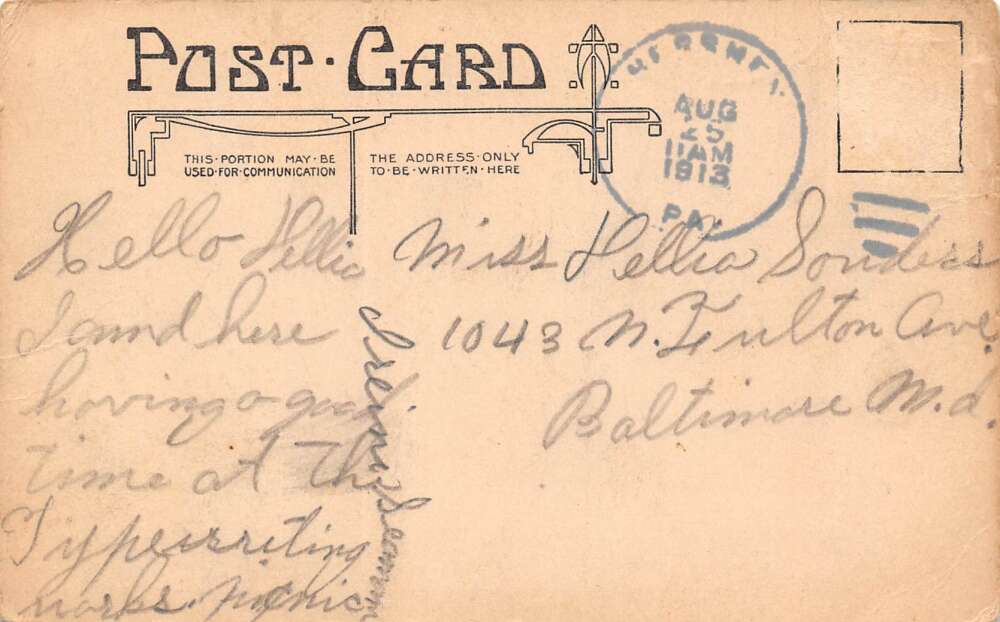 POST·CARD
THIS·PORTION MAY·BE
USED·FOR·COMMUNICATION
THE ADDRESS·ONLY
TO·BE·WRITTEN·HERE
HERSHEY.
AUG
25
11AM
1913
PA.
Hello Hellia
I amd here
having a good
time at the
Typewriting
works. picnic
Miss Hellia
1043 N. Fulton Ave.
Baltimore M.d.